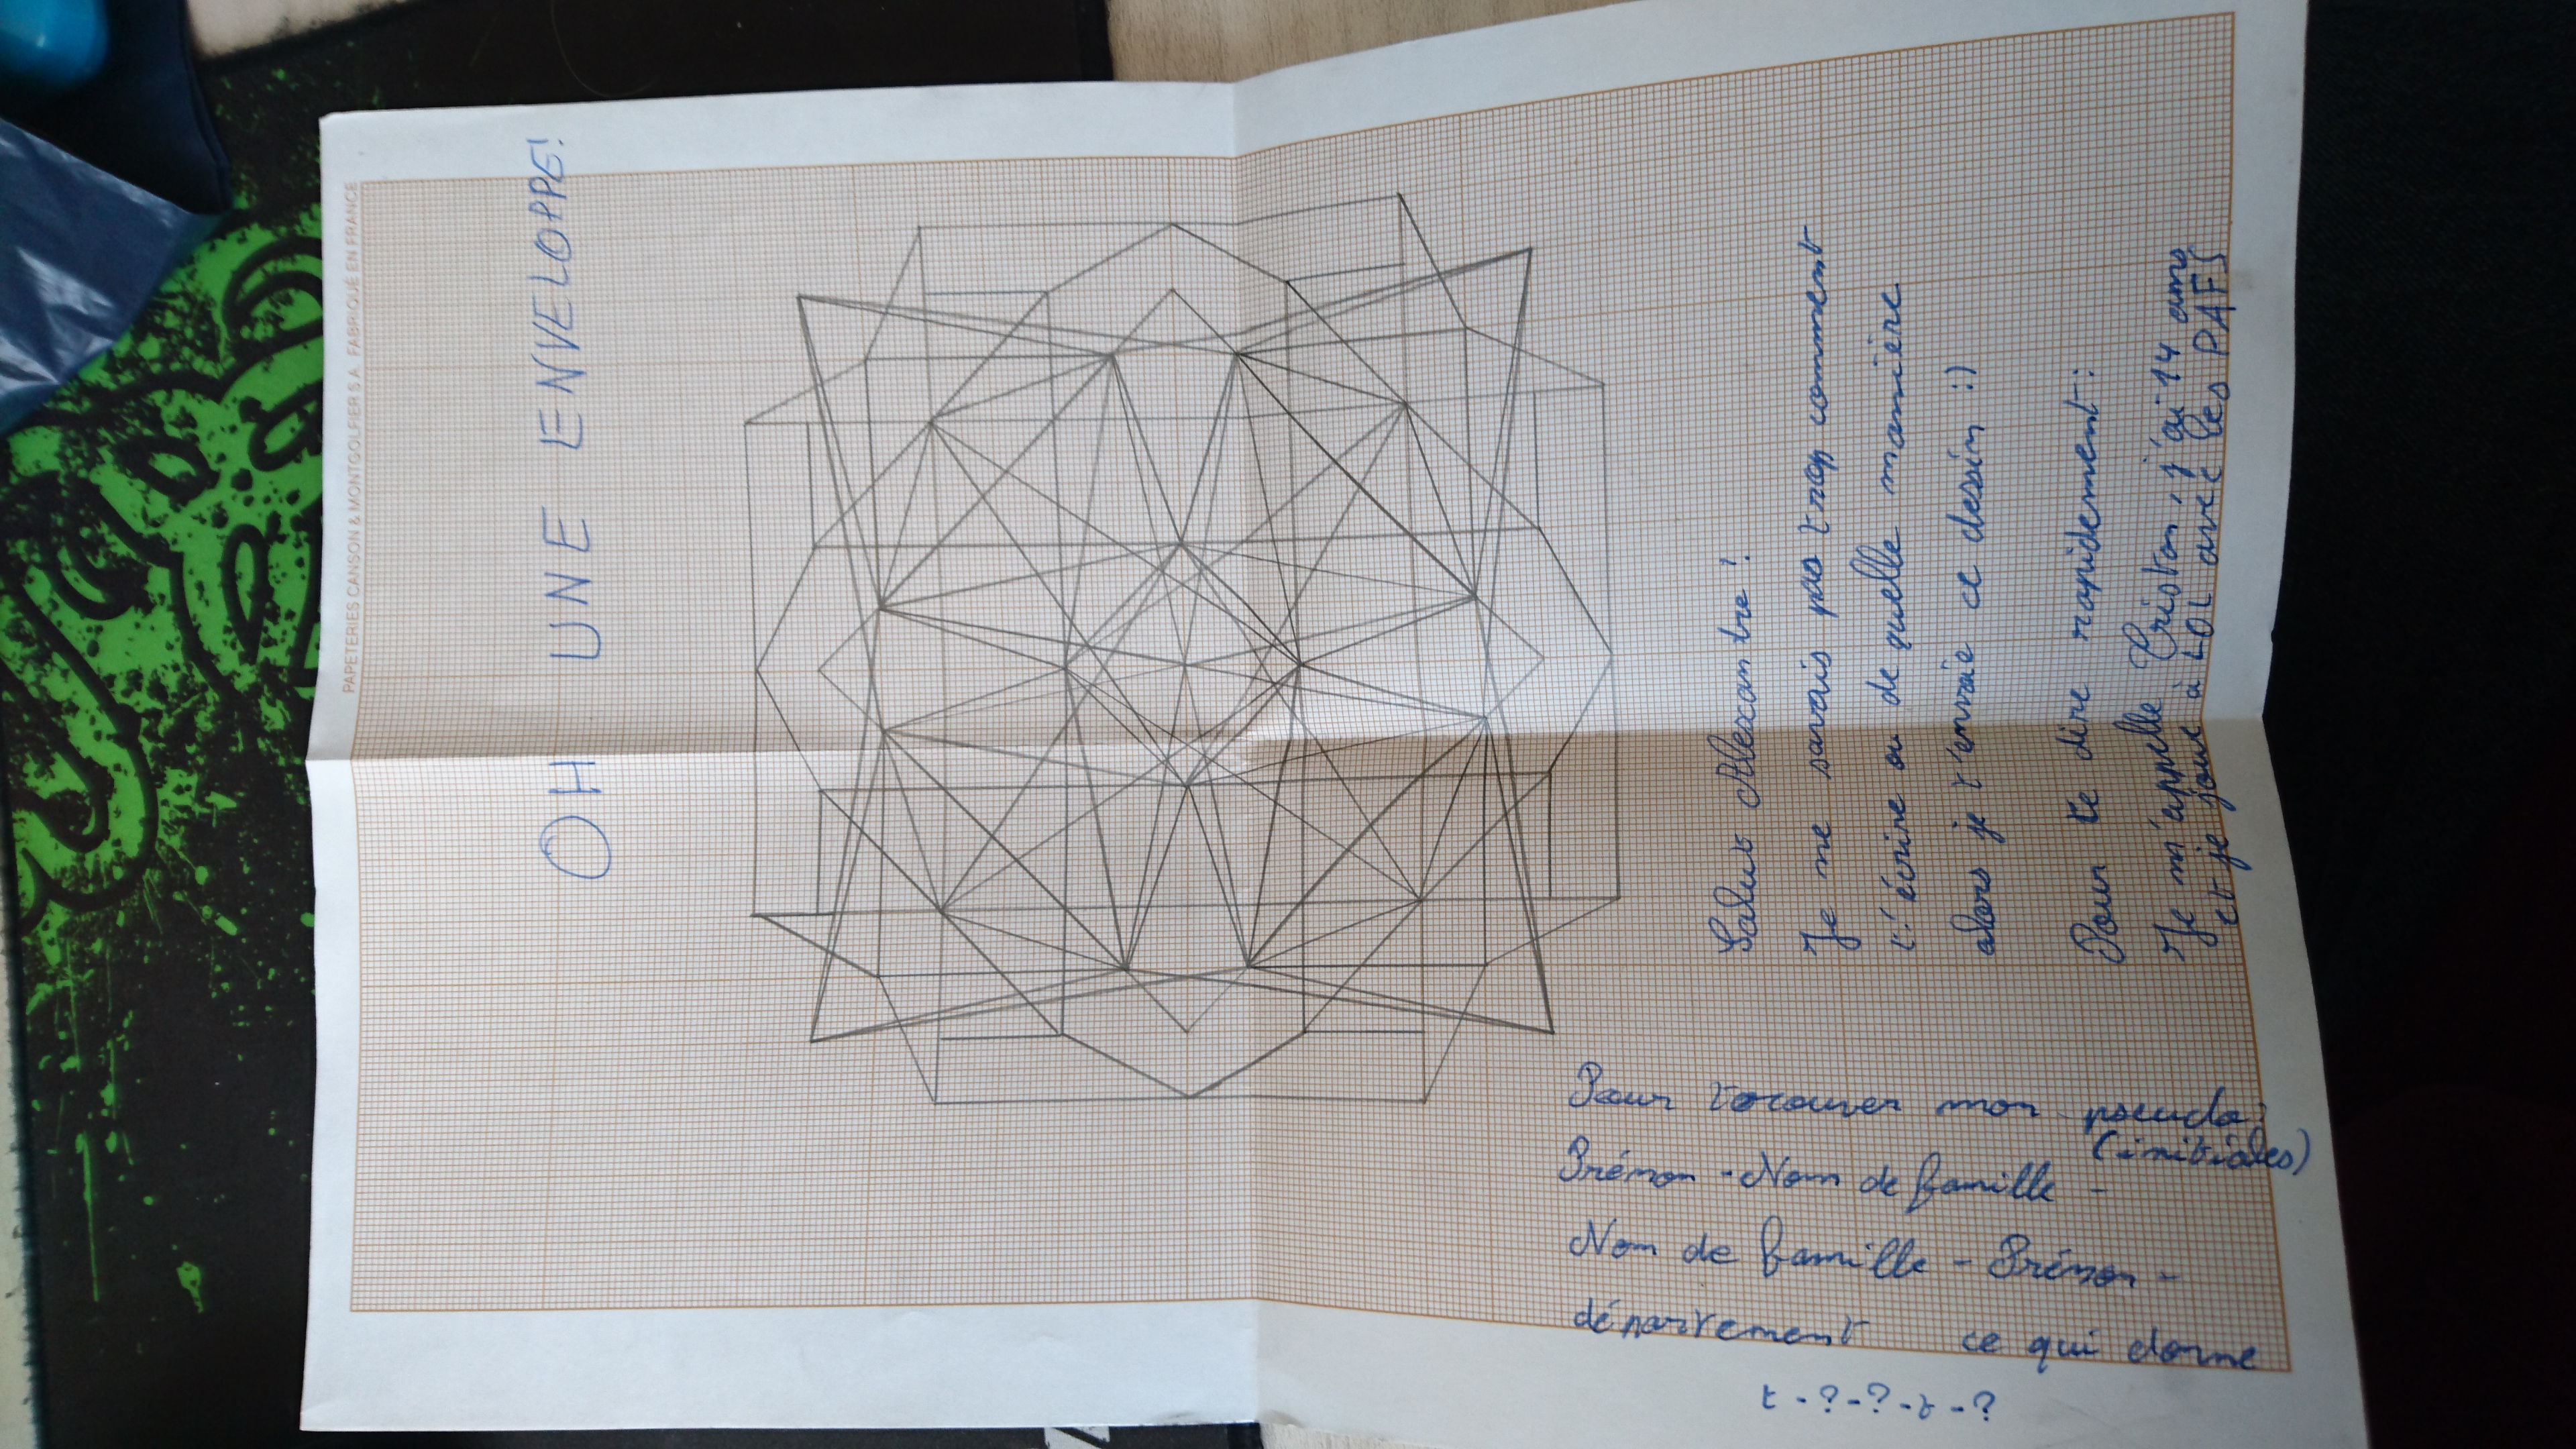 PAPETERIES CANSON & MONTGOLFIER S.A. FABRIQUÉ EN FRANCE
OH UNE ENVELOPPE!
Salut Alexantre!
Je ne savais pas trop comment
t'écrire ou de quelle manière
alors je t'envoie ce dessin :)
Pour te dire rapidement:
Je m'appelle Triston, j'ai 14 ans
et je joue à LOL avec les PAFS
Pour trouver mon pseudo:
(initiales)
Prénon - Nom de famille -
Nom de famille - Prénon -
département ce qui donne
t-?-?-t-?